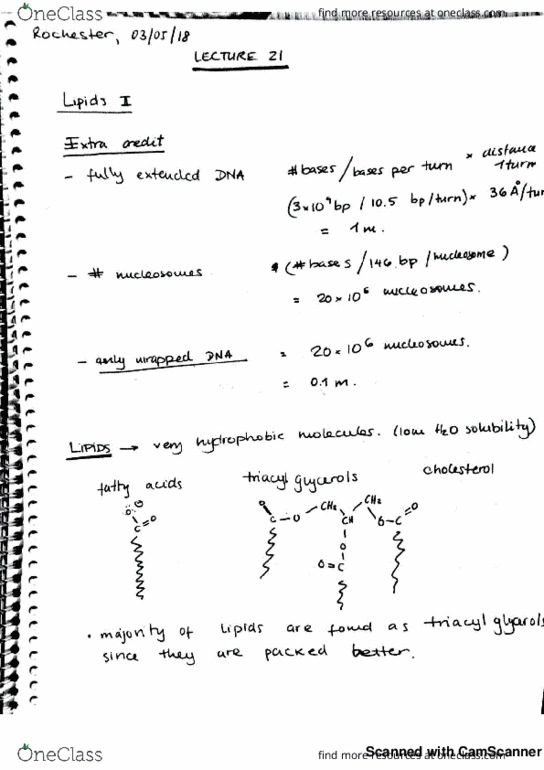 OneClass
find more resources at oneclass.com
Rochester, 03/05/18
LECTURE 21
Lipids I
Extra credit
- fully extended DNA #bases/bases per turn × distance
1turn
(3×10⁹ bp / 10.5 bp/turn)× 36 Å/tur
= 1m.
- # nucleosomes (#bases/146 bp/nucleosome)
= 20×10⁶ nucleosomes.
- only wrapped DNA = 20×10⁶ nucleosomes.
= 0.1 m.
LIPIDS → very hydrophobic molecules. (low H₂O solubility)
fatty acids triacyl glycerols cholesterol
O C=O
O C-O CH₂ CH CH₂ O-C=O
O
O=C
• majority of lipids are found as triacyl glycerols
since they are packed better.
Scanned with CamScanner
OneClass
find more resources at oneclass.com